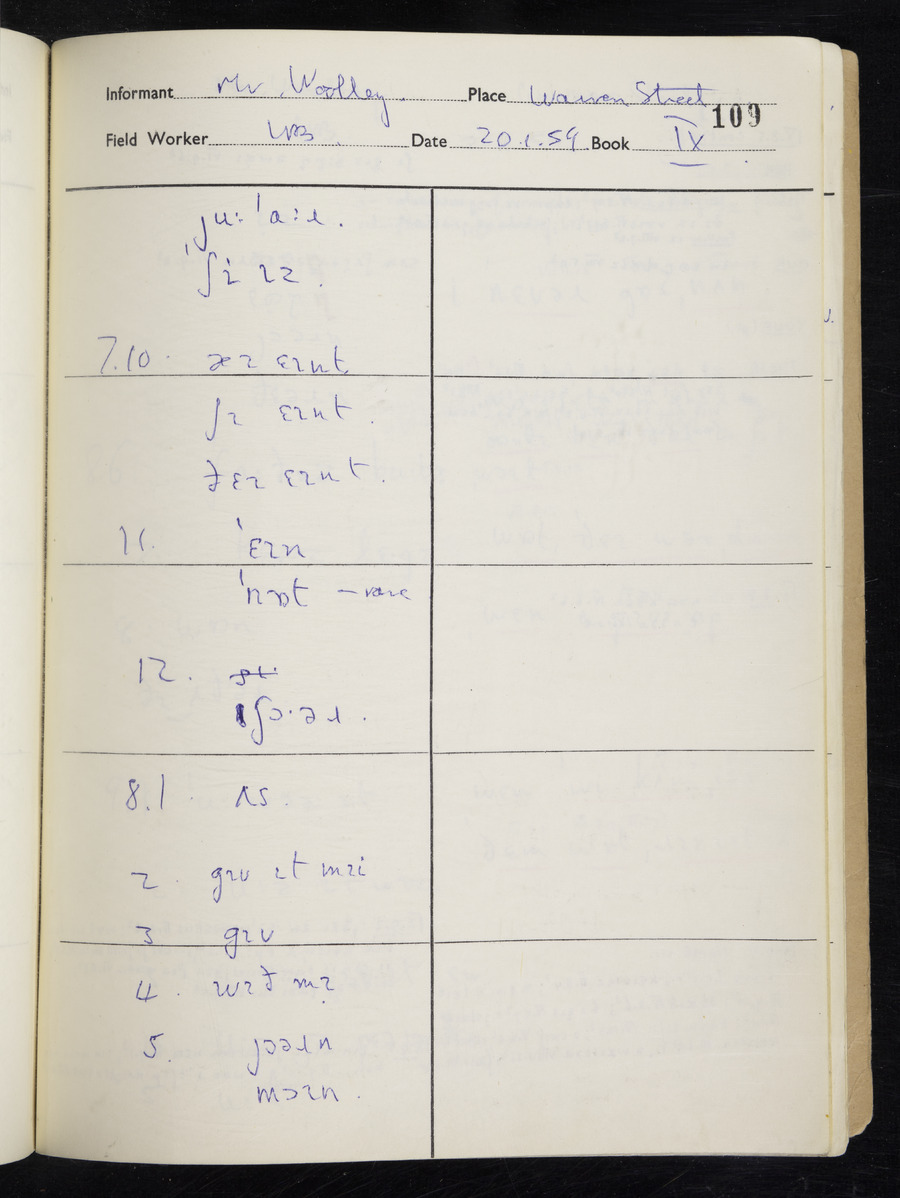 Informant Mr Woolley. Place Warren Street
109
Field Worker Date 20.1.59 Book IX
ju: ˈa:ɹ.
ˈʃi ɪz.
7.10. æɪ ɛɪnt
ʃɪ ɛɪnt.
ðɛɪ ɛɪnt.
11. ˈɛɪn
ˈnɒt – rare
12. ʃɔ·əɹ.
8.1. ʌs.
2. gɪv ɪt mɪi
3 gɪv
4. wɪð mɪ
5. jɔəɹn
mɔɪn.